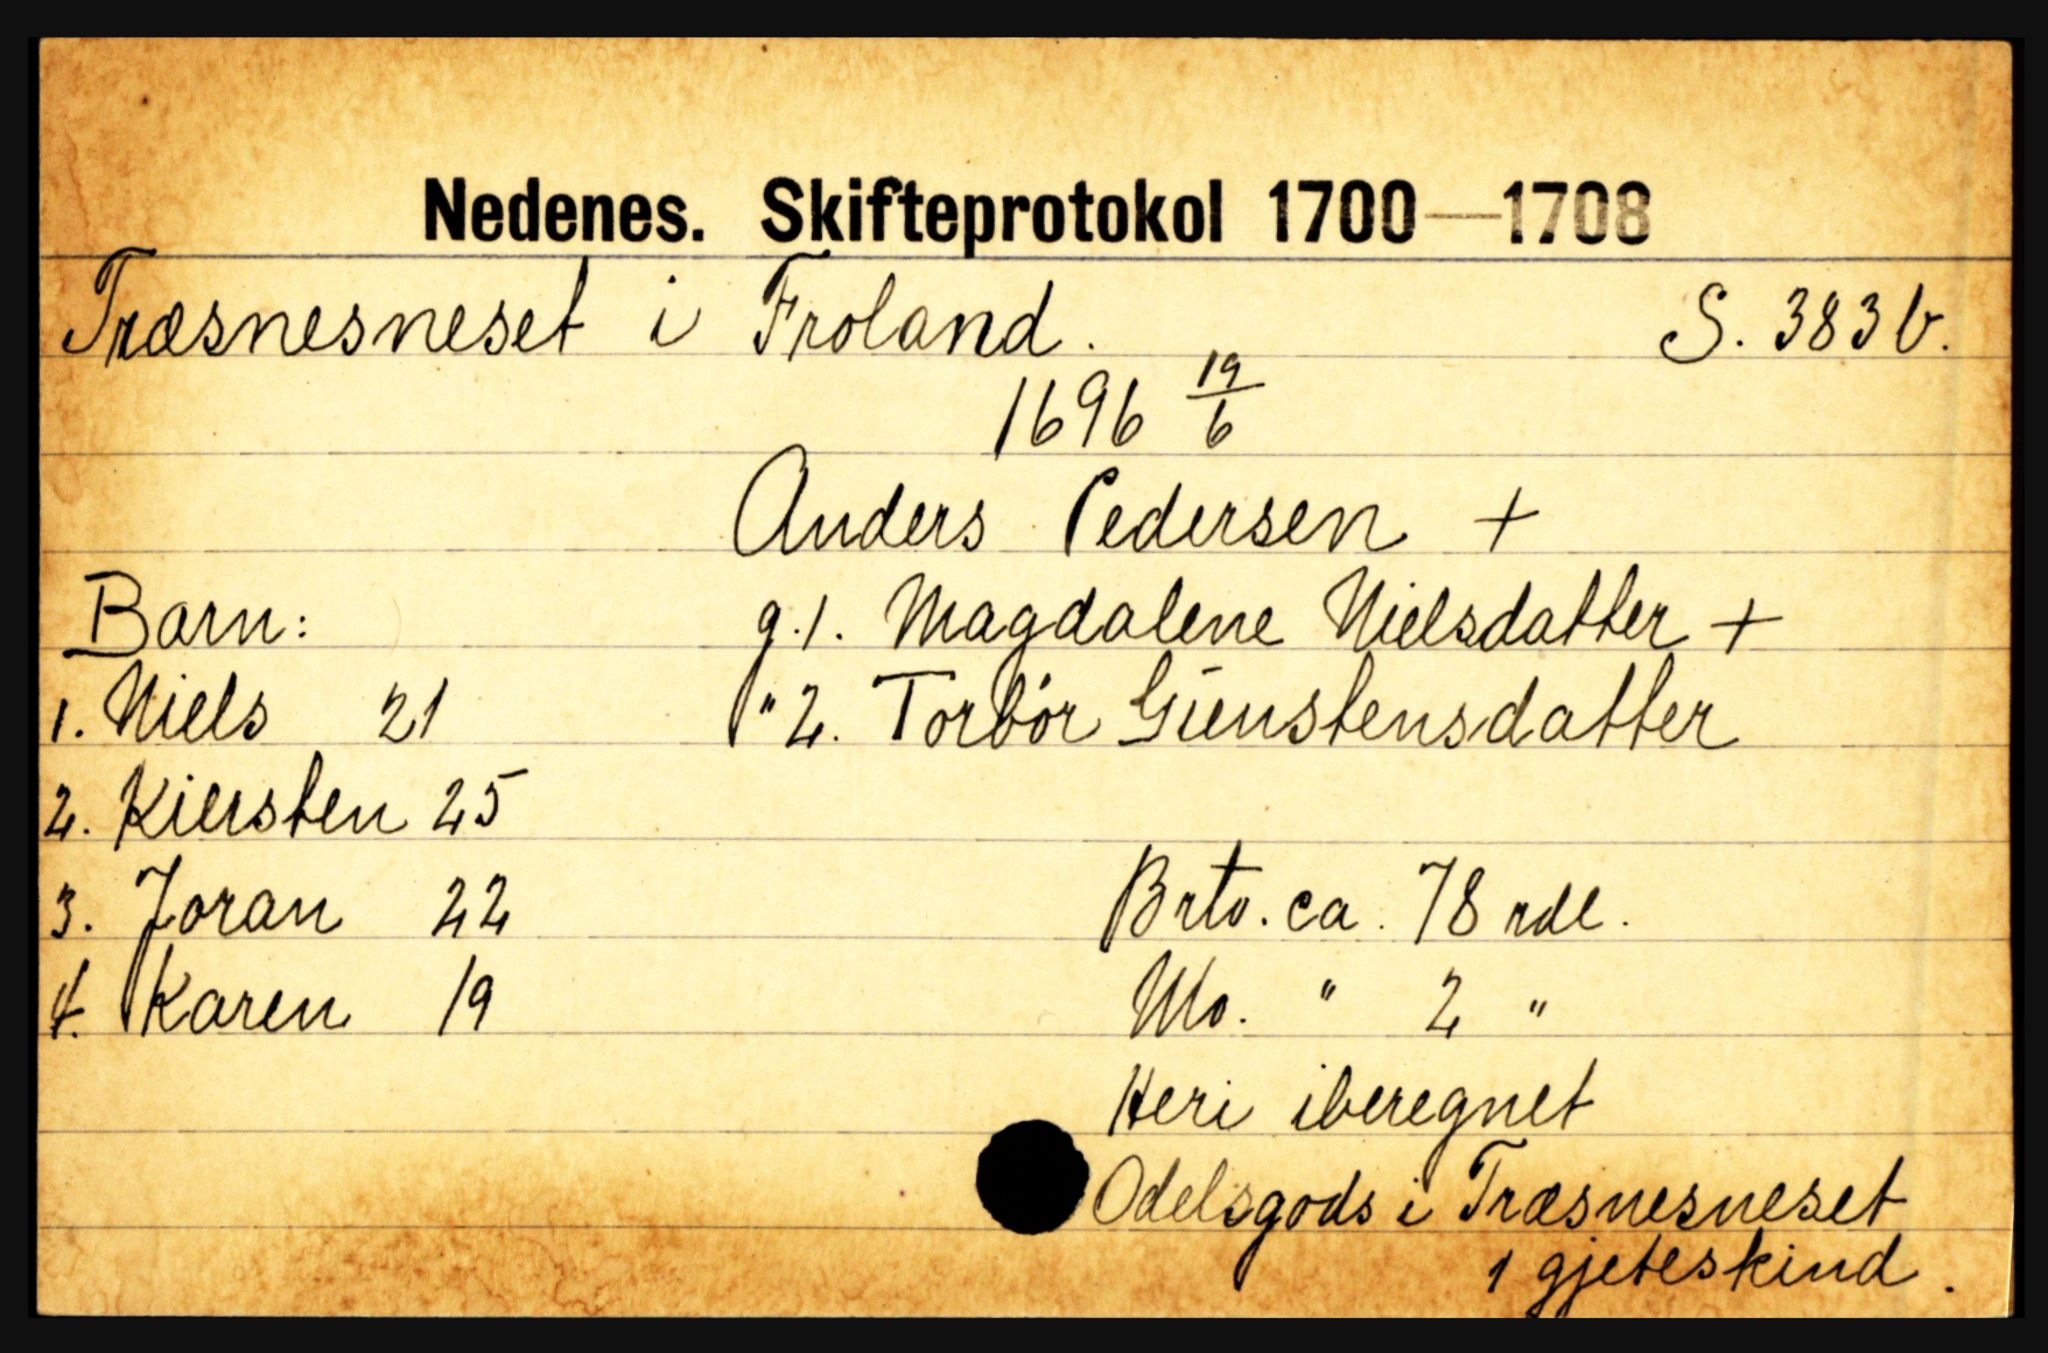 Nedenes. Skifteprotokol 1700—1708
Træsnesneset i Froland. S. 383 b.
1696 19/6
Anders Pedersen +
Barn: g. 1. Magdalene Nielsdatter +
1. Niels 21 " 2. Torbór Gúnstensdatter
2. Kiersten 25
3. Joran 22 Brto. ca. 78 rdl.
4. Karen 19 No. " 2 "
Heri iberegnet
Odelsgods i Træsnesneset
1 gjeteskind.